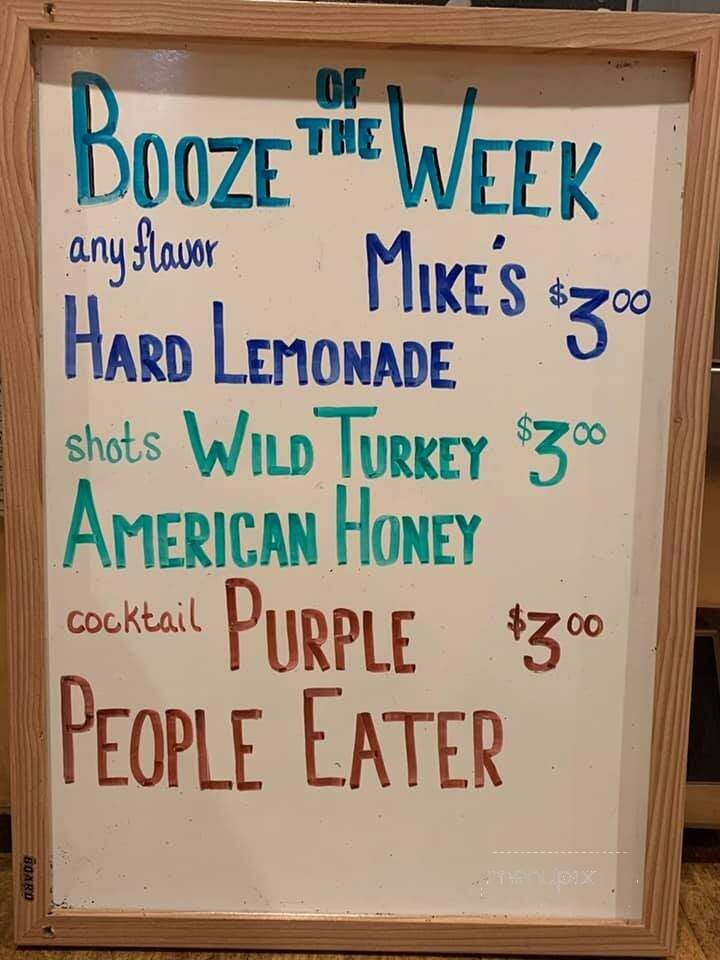 BOOZE OF THE WEEK
any flavor MIKE'S $3.00
HARD LEMONADE
shots WILD TURKEY $3.00
AMERICAN HONEY
cocktail PURPLE $3.00
PEOPLE EATER
BOARD
menupix